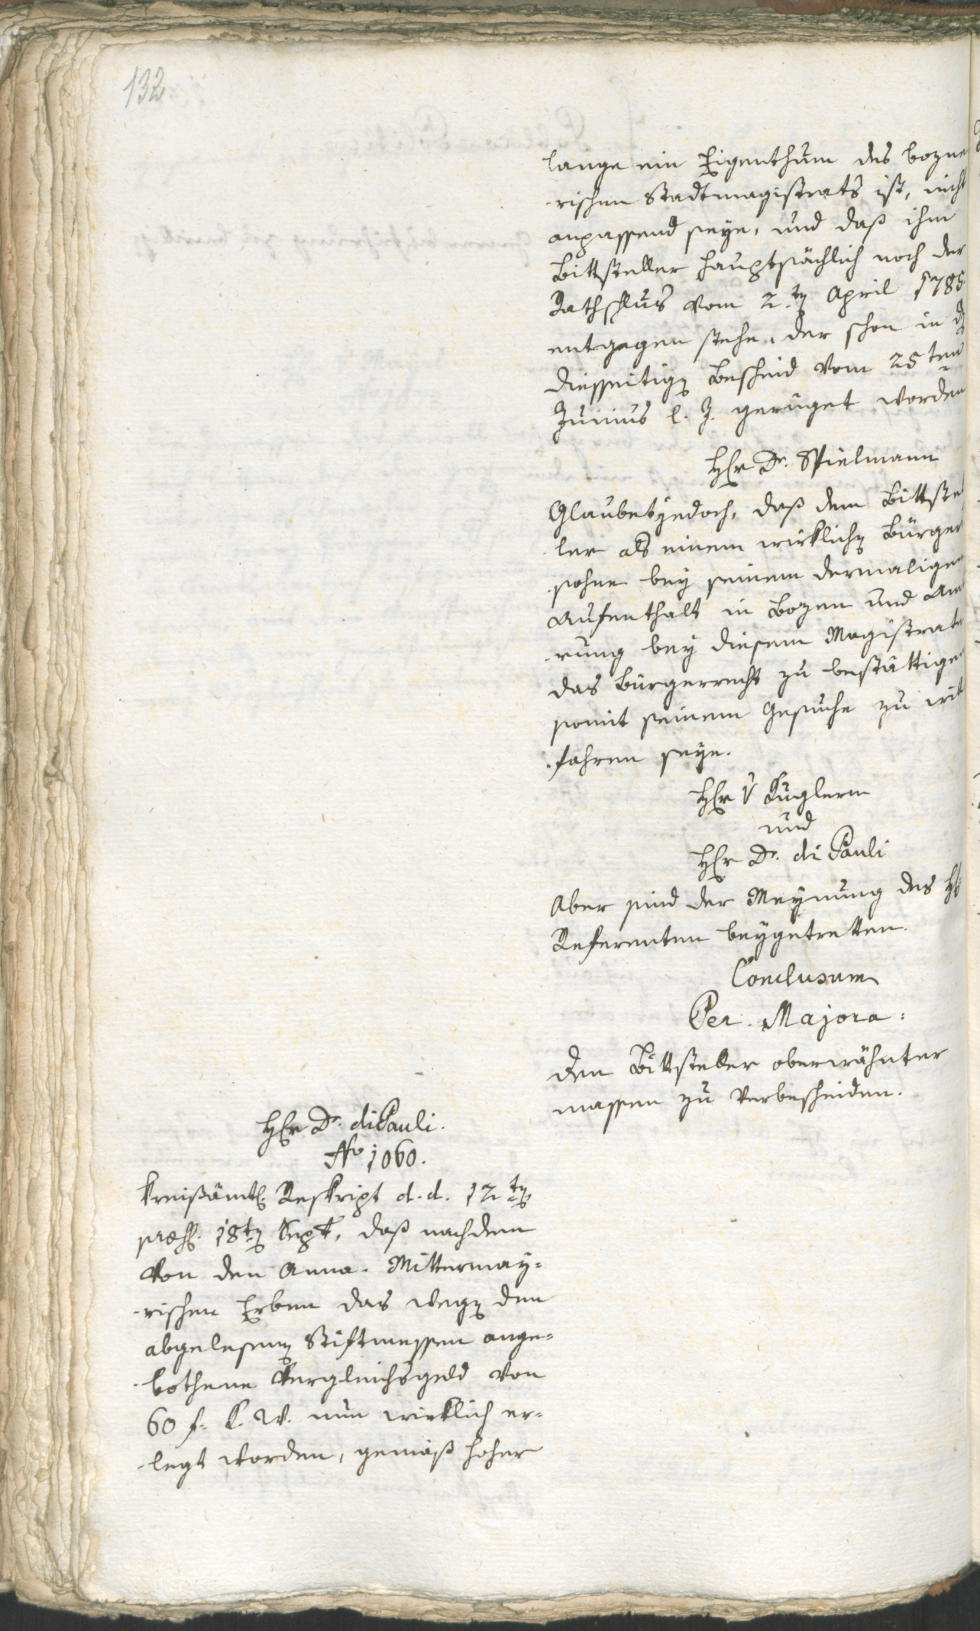 132
lange ein Eigenthum des bozne
rischen Stadtmagistrats ist, nicht
anpassend seye, und daß ihm
Bittsteller hauptsächlich noch der
Rathschlus vom 2.ten April 1785
entgegen stehe, der schon in
diesseitigen Bescheid vom 25ten
Junius l. J. gerüget worden
HEr Dr. Spielmann
Glaubet jedoch, daß dem Bittstel
ler als einem wirklichen Bürgers
sohne bey seinem dermaligen
Aufenthalt in Bozen und
rung bey diesem Magistrate
das Bürgerrecht zu bestättigen
somit seinem Gesuche zu will
fahren seye.
HEr v Kuglern
und
HEr Dr. di Pauli
Aber sind der Meynung des H
Referenten beygetretten.
Conclusum
Per Majora:
Den Bittsteller oberwähnter
massen zu verbescheiden.
HEr Dr. di Pauli.
No 1060.
Kreisämtl. Reskript d. d. 12ten
præs. 18ten Sept., daß nachdem
von den Anna Mittermay=
rischen Erben das wegen den
abgelesenen Stiftmessen ange=
bothene Vergleichsgeld von
60 f. K. W. nun wirklich er=
legt worden, gemäß hoher